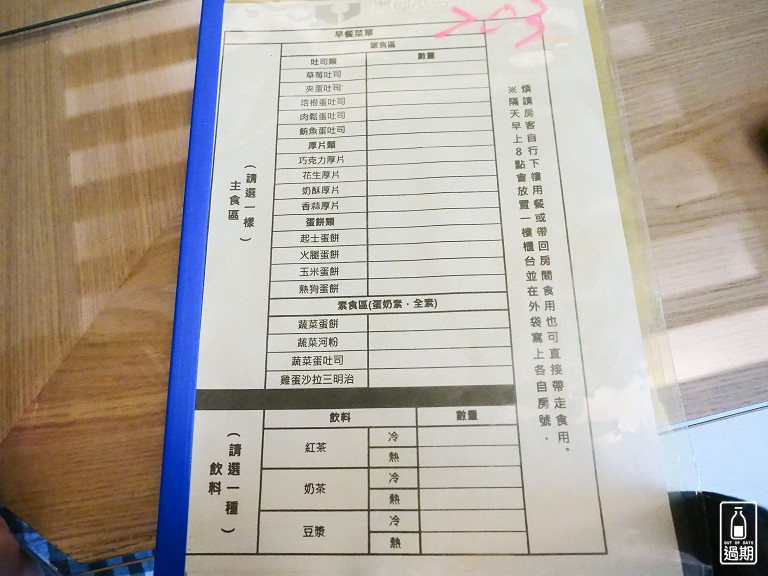 203
早餐菜單
葷食區
吐司類 數量
草莓吐司
夾蛋吐司
培根蛋吐司
肉鬆蛋吐司
鮪魚蛋吐司
厚片類
巧克力厚片
花生厚片
奶酥厚片
香蒜厚片
蛋餅類
起士蛋餅
火腿蛋餅
玉米蛋餅
熱狗蛋餅
素食區(蛋奶素．全素)
蔬菜蛋餅
蔬菜河粉
蔬菜蛋吐司
雞蛋沙拉三明治
（請選一樣）
主食區
飲料 數量
紅茶 冷
熱
奶茶 冷
熱
豆漿 冷
熱
（請選一種）
飲料
煩請房客自行下樓用餐或帶回房間食用也可直接帶走食用。
※隔天早上8點會放置一樓櫃台並在外袋寫上各自房號．
OUT OF DATE
過期